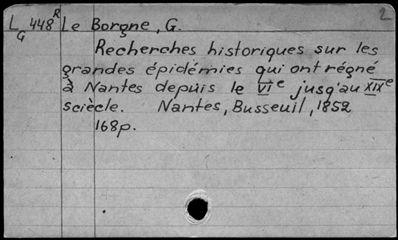 2
L 448 R Le Borgne, G.
G
Recherches historiques sur les
grandes épidémies qui ont régné
à Nantes depuis le VIe jusqu'au XIXe
sciècle. Nantes, Busseuil, 1852
168p.